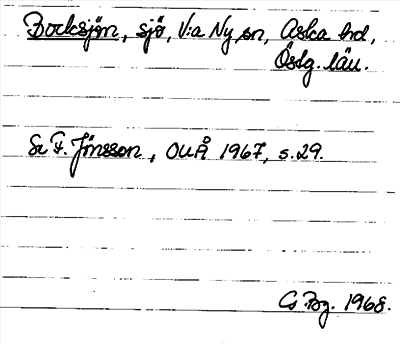 Bocksjön, sjö, V:a Ny, sn, Aska hd,
Östg. län.
Se F. Jönsson, OUÅ 1967, s. 29.
1968.